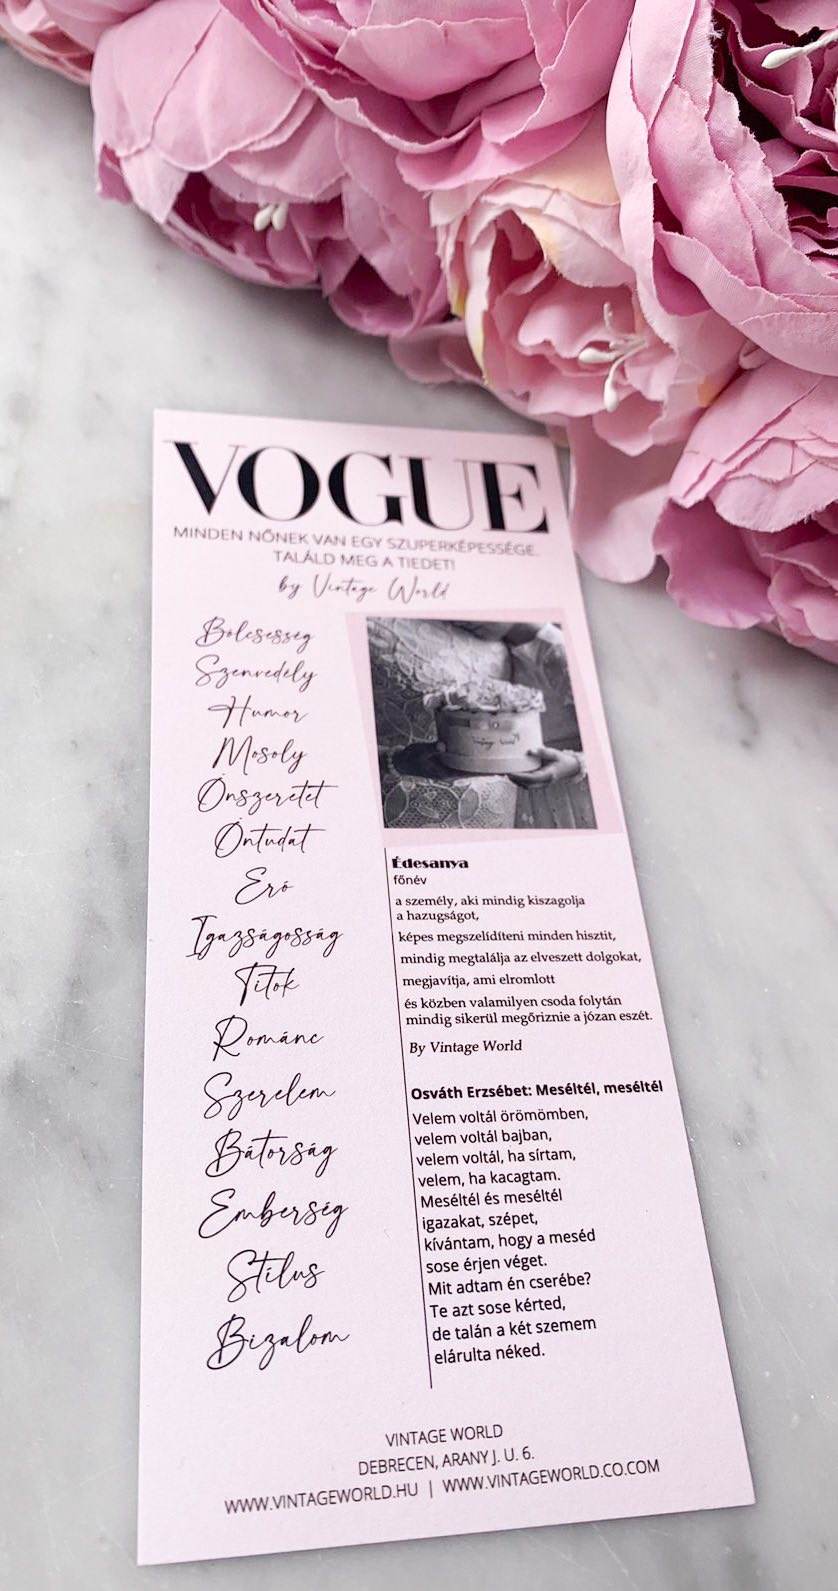 VOGUE
MINDEN NŐNEK VAN EGY SZUPERKÉPESSÉGE.
TALÁLD MEG A TIEDET!
by Vintage World
Bölcsesség
Szenvedély
Humor
Mosoly
Önszeretet
Öntudat
Erő
Igazságosság
Titok
Románc
Szerelem
Bátorság
Emberség
Stílus
Bizalom
Vintage World
Édesanya
főnév
a személy, aki mindig kiszagolja
a hazugságot,
képes megszelídíteni minden hisztit,
mindig megtalálja az elveszett dolgokat,
megjavítja, ami elromlott
és közben valamilyen csoda folytán
mindig sikerül megőriznie a józan eszét.
By Vintage World
Osváth Erzsébet: Meséltél, meséltél
Velem voltál örömömben,
velem voltál bajban,
velem voltál, ha sírtam,
velem, ha kacagtam.
Meséltél és meséltél
igazakat, szépet,
kívántam, hogy a meséd
sose érjen véget.
Mit adtam én cserébe?
Te azt sose kérted,
de talán a két szemem
elárulta néked.
VINTAGE WORLD
DEBRECEN, ARANY J. U. 6.
WWW.VINTAGEWORLD.HU | WWW.VINTAGEWORLD.CO.COM